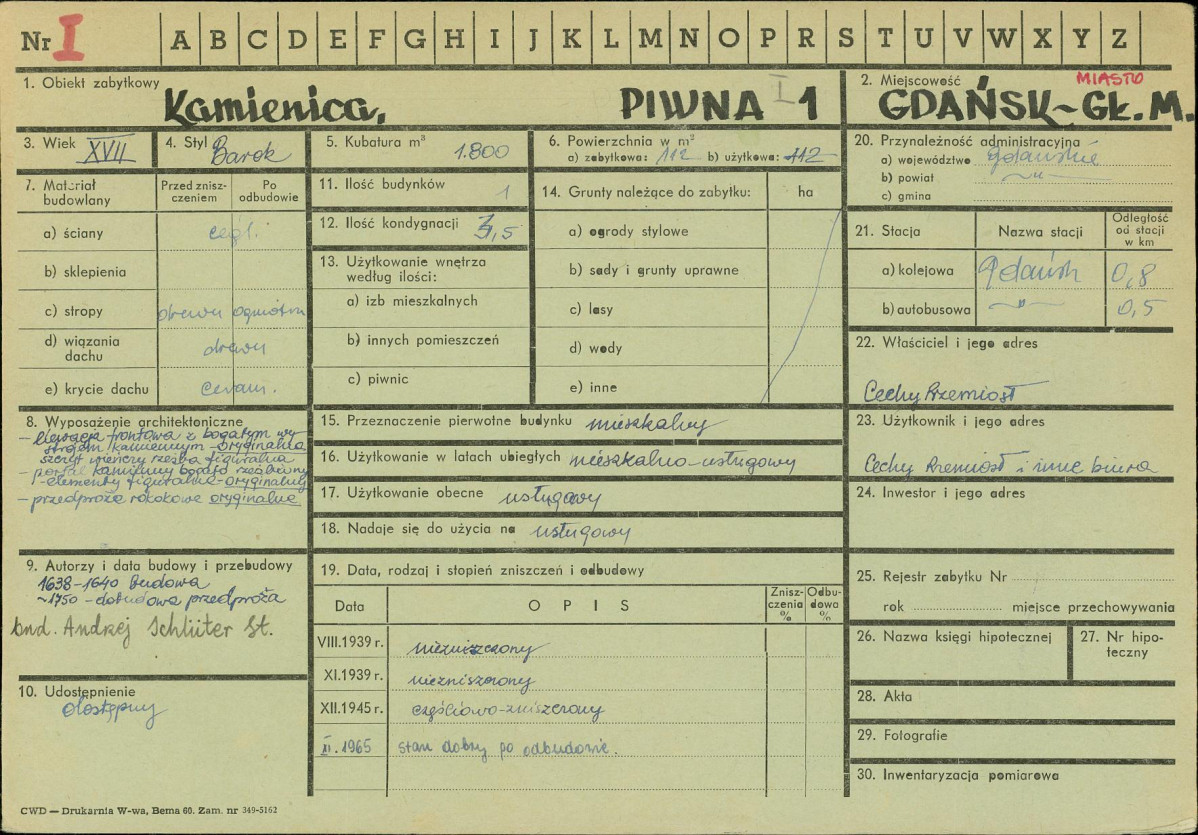 Nr I A B C D E F G H I J K L M N O P R S T U V W X Y Z
1. Obiekt zabytkowy
Kamienica, PIWNA I 1
2. Miejscowość
MIASTO
GDAŃSK~GŁ. M.
3. Wiek XVII
4. Styl Barok
5. Kubatura m³ 1.800
6. Powierzchnia w m²
a) zabytkowa: 112 b) użytkowa: 112
20. Przynależność administracyjna
a) województwo gdańskie
b) powiat ~"~
c) gmina
7. Materiał budowlany
Przed zniszczeniem
Po odbudowie
a) ściany cegl.
b) sklepienia
c) stropy drewn ogniotrw
d) wiązania dachu drewn
e) krycie dachu ceram.
11. Ilość budynków 1
12. Ilość kondygnacji 3,5
13. Użytkowanie wnętrza
według ilości:
a) izb mieszkalnych
b) innych pomieszczeń
c) piwnic
14. Grunty należące do zabytku: ha
a) ogrody stylowe
b) sady i grunty uprawne
c) lasy
d) wody
e) inne
21. Stacja
Nazwa stacji
Odległość
od stacji
w km
a) kolejowa Gdańsk 0,8
b) autobusowa ~"~ 0,5
22. Właściciel i jego adres
Cechy Rzemiosł
8. Wyposażenie architektoniczne
- elewacja frontowa z bogatym wy-
strojem kamiennym - oryginalna
szczyt wieńczy rzeźba figuralna
- portal kamienny bogato rzeźbiony
- elementy figuralne - oryginalny
- przedproże rokokowe oryginalne
15. Przeznaczenie pierwotne budynku mieszkalny
16. Użytkowanie w latach ubiegłych mieszkalno-usługowy
17. Użytkowanie obecne usługowy
18. Nadaje się do użycia na usługowy
23. Użytkownik i jego adres
Cechy Rzemiosł i inne biura
24. Inwestor i jego adres
9. Autorzy i data budowy i przebudowy
1638-1640 budowa
~1750 - dobudowa przedproża
bud. Andrzej Schlüter St.
10. Udostępnienie
dostępny
19. Data, rodzaj i stopień zniszczeń i odbudowy
Data
O P I S
Zniszczenia
%
Odbudowa
%
VIII.1939 r. niezniszczony
XI.1939 r. niezniszczony
XII.1945 r. częściowo-zniszczony
XI. 1965 stan dobry po odbudowie.
25. Rejestr zabytku Nr
rok miejsce przechowywania
26. Nazwa księgi hipotecznej
27. Nr hipoteczny
28. Akta
29. Fotografie
30. Inwentaryzacja pomiarowa
CWD — Drukarnia W-wa, Bema 60. Zam. nr 349-5162